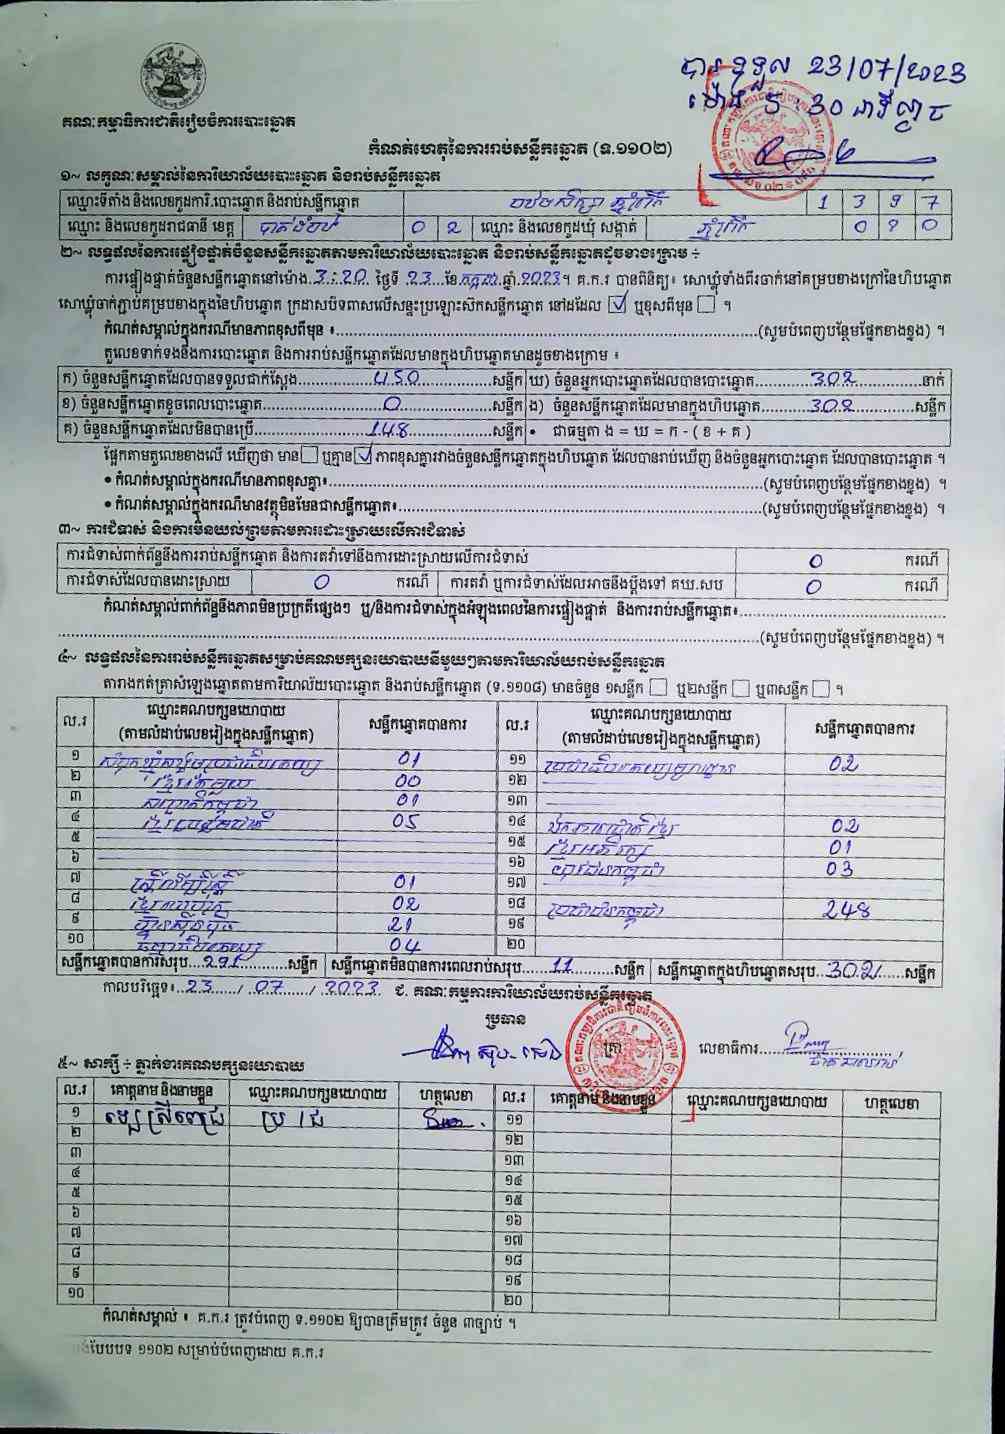 បានទទួល 23/07/2023
ម៉ោង 5:30 នាទីល្ងាច
គណៈកម្មាធិការជាតិរៀបចំការបោះឆ្នោត
កំណត់ហេតុនៃការរាប់សន្លឹកឆ្នោត (ទ.១១០២)
១~ លក្ខណៈសម្គាល់នៃការិយាល័យបោះឆ្នោត និងរាប់សន្លឹកឆ្នោត
ឈ្មោះទីតាំង និងលេខកូដការិ.បោះឆ្នោត និងរាប់សន្លឹកឆ្នោត 1 3 9 7
ឈ្មោះ និងលេខកូដរាជធានី ខេត្ត បាត់ដំបង 0 2 ឈ្មោះ និងលេខកូដឃុំ សង្កាត់
២~ លទ្ធផលនៃការផ្ទៀងផ្ទាត់ចំនួនសន្លឹកឆ្នោតតាមការិយាល័យបោះឆ្នោត និងរាប់សន្លឹកឆ្នោតដូចខាងក្រោម ÷
ការផ្ទៀងផ្ទាត់ចំនួនសន្លឹកឆ្នោតនៅម៉ោង 3:20 ថ្ងៃទី 23 ខែ កក្កដា ឆ្នាំ 2023។ គ.ក.រ បានពិនិត្យ៖ សោឃ្លុំទាំងពីរចាក់នៅគម្របខាងក្រៅនៃហិបឆ្នោត
សោឃ្លុំចាក់ភ្ជាប់គម្របខាងក្នុងនៃហិបឆ្នោត ក្រដាសបិទពាសលើសន្ទះប្រឡោះស៊កសន្លឹកឆ្នោត នៅដដែល ☑ ឬខុសពីមុន ☐ ។
កំណត់សម្គាល់ក្នុងករណីមានភាពខុសពីមុន ៖ (សូមបំពេញបន្ថែមផ្នែកខាងខ្នង) ។
តួលេខទាក់ទងនឹងការបោះឆ្នោត និងការរាប់សន្លឹកឆ្នោតដែលមានក្នុងហិបឆ្នោតមានដូចខាងក្រោម ៖
ក) ចំនួនសន្លឹកឆ្នោតដែលបានទទួលជាក់ស្តែង 450 សន្លឹក ឃ) ចំនួនអ្នកបោះឆ្នោតដែលបានបោះឆ្នោត 302 នាក់
ខ) ចំនួនសន្លឹកឆ្នោតខូចពេលបោះឆ្នោត 0 សន្លឹក ង) ចំនួនសន្លឹកឆ្នោតដែលមានក្នុងហិបឆ្នោត 302 សន្លឹក
គ) ចំនួនសន្លឹកឆ្នោតដែលមិនបានប្រើ 148 សន្លឹក • ជាធម្មតា ង = ឃ = ក - ( ខ + គ )
ផ្អែកតាមតួលេខខាងលើ ឃើញថា មាន ☐ ឬគ្មាន ☑ ភាពខុសគ្នារវាងចំនួនសន្លឹកឆ្នោតក្នុងហិបឆ្នោត ដែលបានរាប់ឃើញ និងចំនួនអ្នកបោះឆ្នោត ដែលបានបោះឆ្នោត ។
• កំណត់សម្គាល់ក្នុងករណីមានភាពខុសគ្នា៖ (សូមបំពេញបន្ថែមផ្នែកខាងខ្នង) ។
• កំណត់សម្គាល់ក្នុងករណីមានវត្ថុមិនមែនជាសន្លឹកឆ្នោត៖ (សូមបំពេញបន្ថែមផ្នែកខាងខ្នង) ។
៣~ ការជំទាស់ និងការមិនយល់ព្រមតាមការដោះស្រាយលើការជំទាស់
ការជំទាស់ពាក់ព័ន្ធនឹងការរាប់សន្លឹកឆ្នោត និងការតវ៉ាទៅនឹងការដោះស្រាយលើការជំទាស់ 0 ករណី
ការជំទាស់ដែលបានដោះស្រាយ 0 ករណី ការតវ៉ា ឬការជំទាស់ដែលអាចនឹងប្តឹងទៅ គឃ.សប 0 ករណី
កំណត់សម្គាល់ពាក់ព័ន្ធនឹងភាពមិនប្រក្រតីផ្សេងៗ ឬ/និងការជំទាស់ក្នុងអំឡុងពេលនៃការផ្ទៀងផ្ទាត់ និងការរាប់សន្លឹកឆ្នោត៖
(សូមបំពេញបន្ថែមផ្នែកខាងខ្នង) ។
៤~ លទ្ធផលនៃការរាប់សន្លឹកឆ្នោតសម្រាប់គណបក្សនយោបាយនីមួយៗតាមការិយាល័យរាប់សន្លឹកឆ្នោត
តារាងកត់ត្រាសំឡេងឆ្នោតតាមការិយាល័យបោះឆ្នោត និងរាប់សន្លឹកឆ្នោត (ទ.១១០៨) មានចំនួន ១សន្លឹក ☐ ឬ២សន្លឹក ☐ ឬ៣សន្លឹក ☐ ។
ល.រ ឈ្មោះគណបក្សនយោបាយ (តាមលំដាប់លេខរៀងក្នុងសន្លឹកឆ្នោត) សន្លឹកឆ្នោតបានការ ល.រ ឈ្មោះគណបក្សនយោបាយ (តាមលំដាប់លេខរៀងក្នុងសន្លឹកឆ្នោត) សន្លឹកឆ្នោតបានការ
១ 01 ១១ 02
២ ខ្មែររួបរួម 00 ១២
៣ សញ្ជាតិកម្ពុជា 01 ១៣
៤ 05 ១៤ 02
៥ ១៥ 01
៦ ១៦ យុវជនកម្ពុជា 03
៧ ស្ត្រីដើម្បីស្ត្រី 01 ១៧
៨ 02 ១៨ ប្រជាជនកម្ពុជា 248
៩ ហ្វ៊ុនស៊ិនប៉ិច 21 ១៩
១០ 04 ២០
សន្លឹកឆ្នោតបានការសរុប 291 សន្លឹក សន្លឹកឆ្នោតមិនបានការពេលរាប់សរុប 11 សន្លឹក សន្លឹកឆ្នោតក្នុងហិបឆ្នោតសរុប 302 សន្លឹក
កាលបរិច្ឆេទ៖ 23 / 07 / 2023 ជ. គណៈកម្មការការិយាល័យរាប់សន្លឹកឆ្នោត
ប្រធាន
ត្រា លេខាធិការ
៥~ សាក្សី ÷ ភ្នាក់ងារគណបក្សនយោបាយ
ល.រ គោត្តនាម និងនាមខ្លួន ឈ្មោះគណបក្សនយោបាយ ហត្ថលេខា ល.រ គោត្តនាម និងនាមខ្លួន ឈ្មោះគណបក្សនយោបាយ ហត្ថលេខា
១ ប្រ ជ ១១
២ ១២
៣ ១៣
៤ ១៤
៥ ១៥
៦ ១៦
៧ ១៧
៨ ១៨
៩ ១៩
១០ ២០
កំណត់សម្គាល់ ៖ គ.ក.រ ត្រូវបំពេញ ទ.១១០២ ឱ្យបានត្រឹមត្រូវ ចំនួន ៣ច្បាប់ ។
បែបបទ ១១០២ សម្រាប់បំពេញដោយ គ.ក.រ